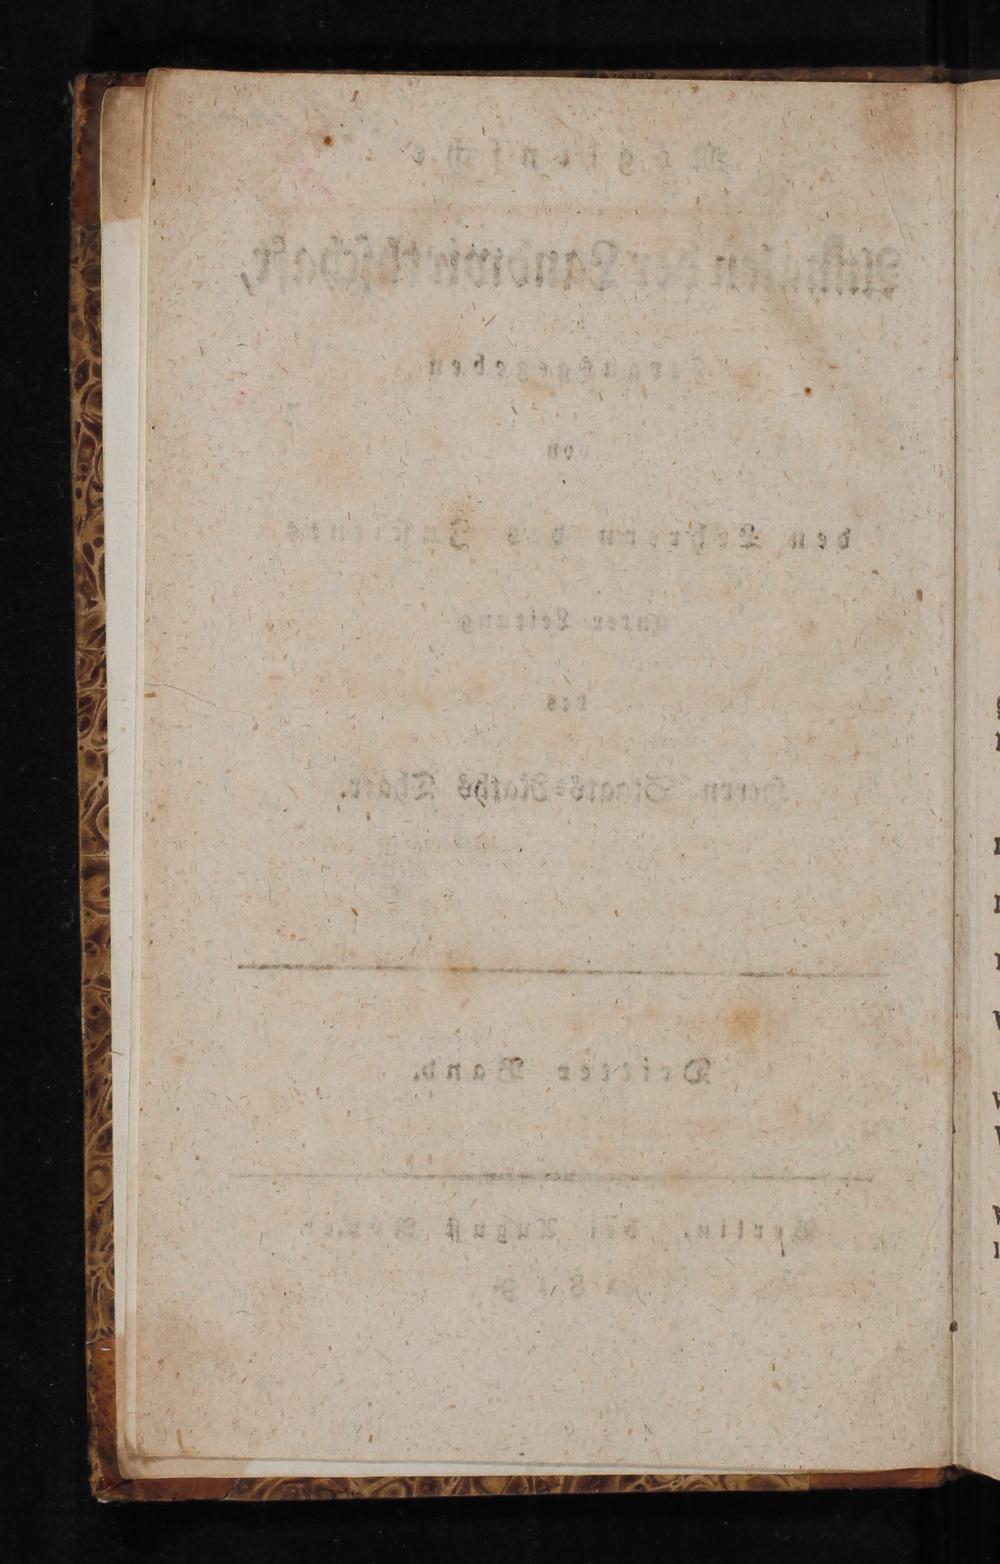 Möglinsche
Annalen der Landwirthschaft,
Herausgegeben
von
den Lehrern des Instituts
unter Leitung
des
Herrn Staats-Raths Thaer.
Dritter Band.
Berlin, bei August Rücker
1819